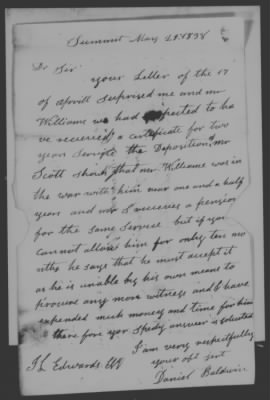 Summit May 21 1838
Dr Sir
your Letter of the 17
of Aprill Suprised me and mr
Williams we had expected to ha
ve received a certificate for two
years Servise the Deposition of mr
Scott that mr Williams was in
the war with him near one and a half
years and receives a pension
for the same Service but if you
cannot allow him for only ten mo
nths he says that he must accept it
as he is unable by his own means to
procure any more witness and have
expended much money and time for him
there fore your speedy answer is solicited
I am very respectfully
your obt sert
J L Edwards Esq
Daniel Baldwin